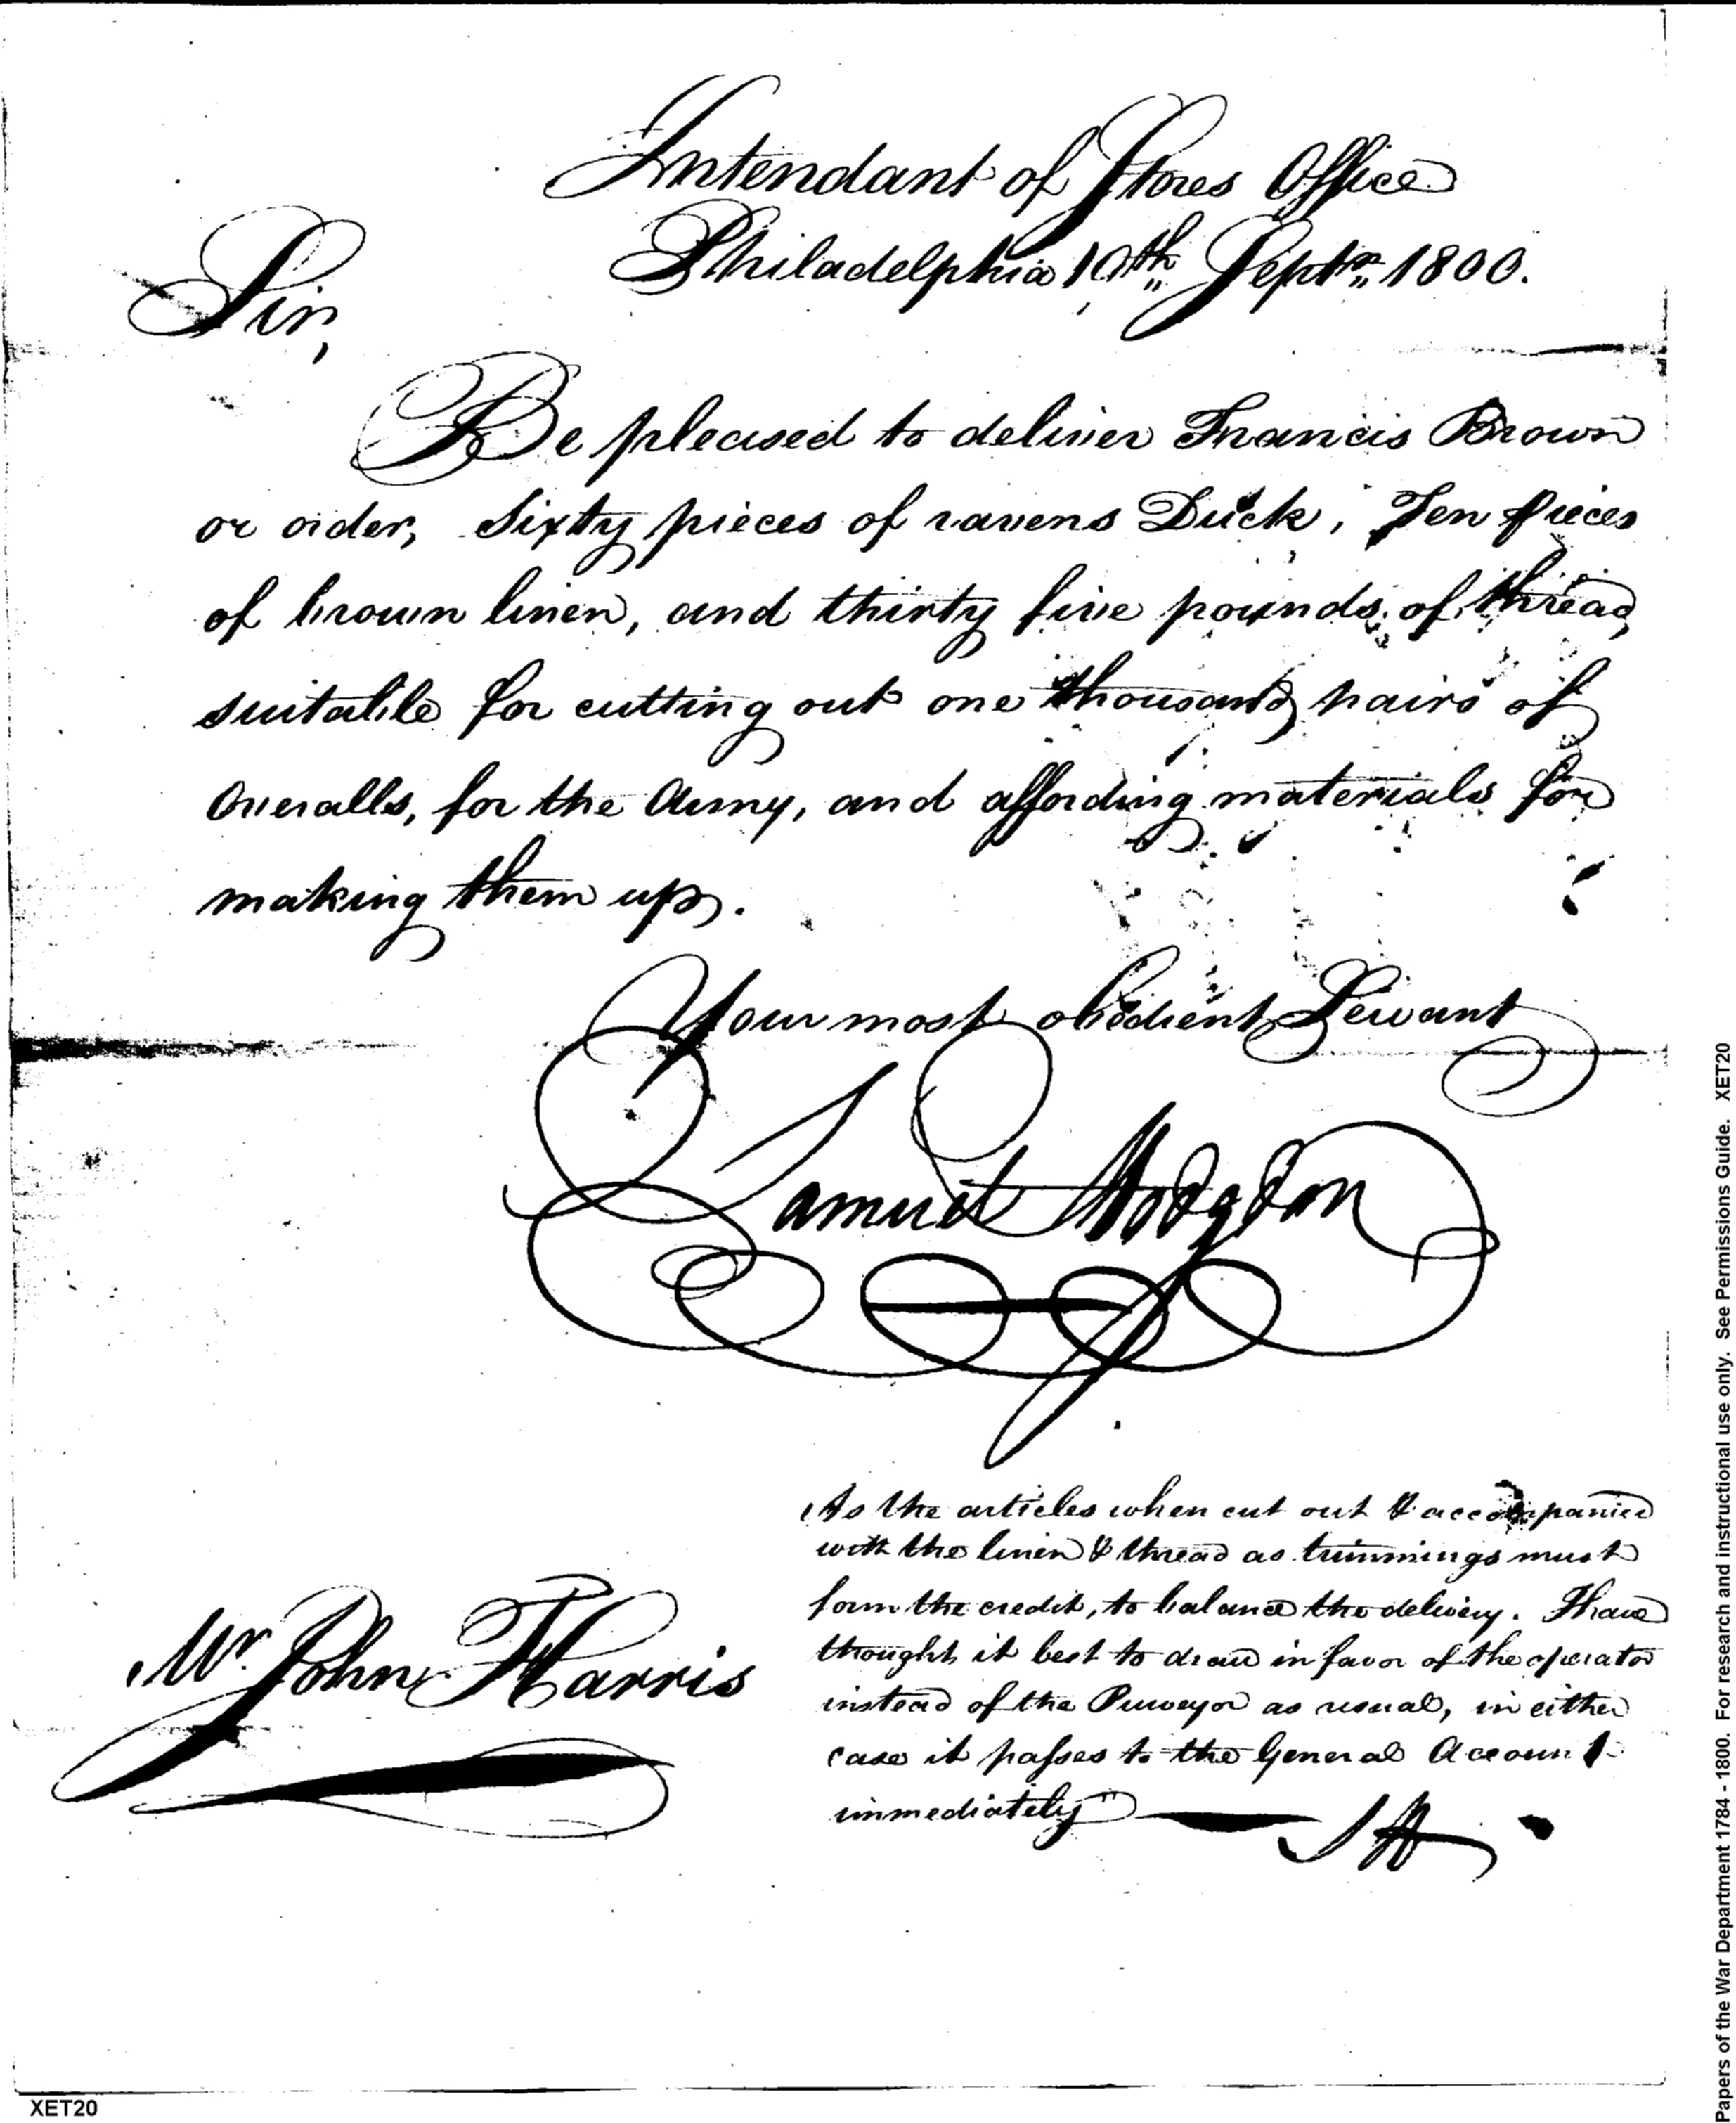 Intendant of Stores Office
Philadelphia 10th Septr. 1800.
Sir,
Be pleased to deliver Francis Brown
or order, Sixty pieces of ravens Duck, Ten pieces
of brown linen, and thirty five pounds of thread,
suitable for cutting out one thousand pairs of
Overalls, for the Army, and affording materials for
making them up.
Your most obedient Servant
Samuel Hodgdon
As the articles when cut out & accompanied
with the linen & thread as trimmings must
form the credit, to balance the delivery. I have
thought it best to draw in favor of the operator
instead of the Purveyor as usual, in either
case it passes to the General Account
immediately SH
Mr. John Harris
XET20
Papers of the War Department 1784 - 1800. For research and instructional use only. See Permissions Guide. XET20